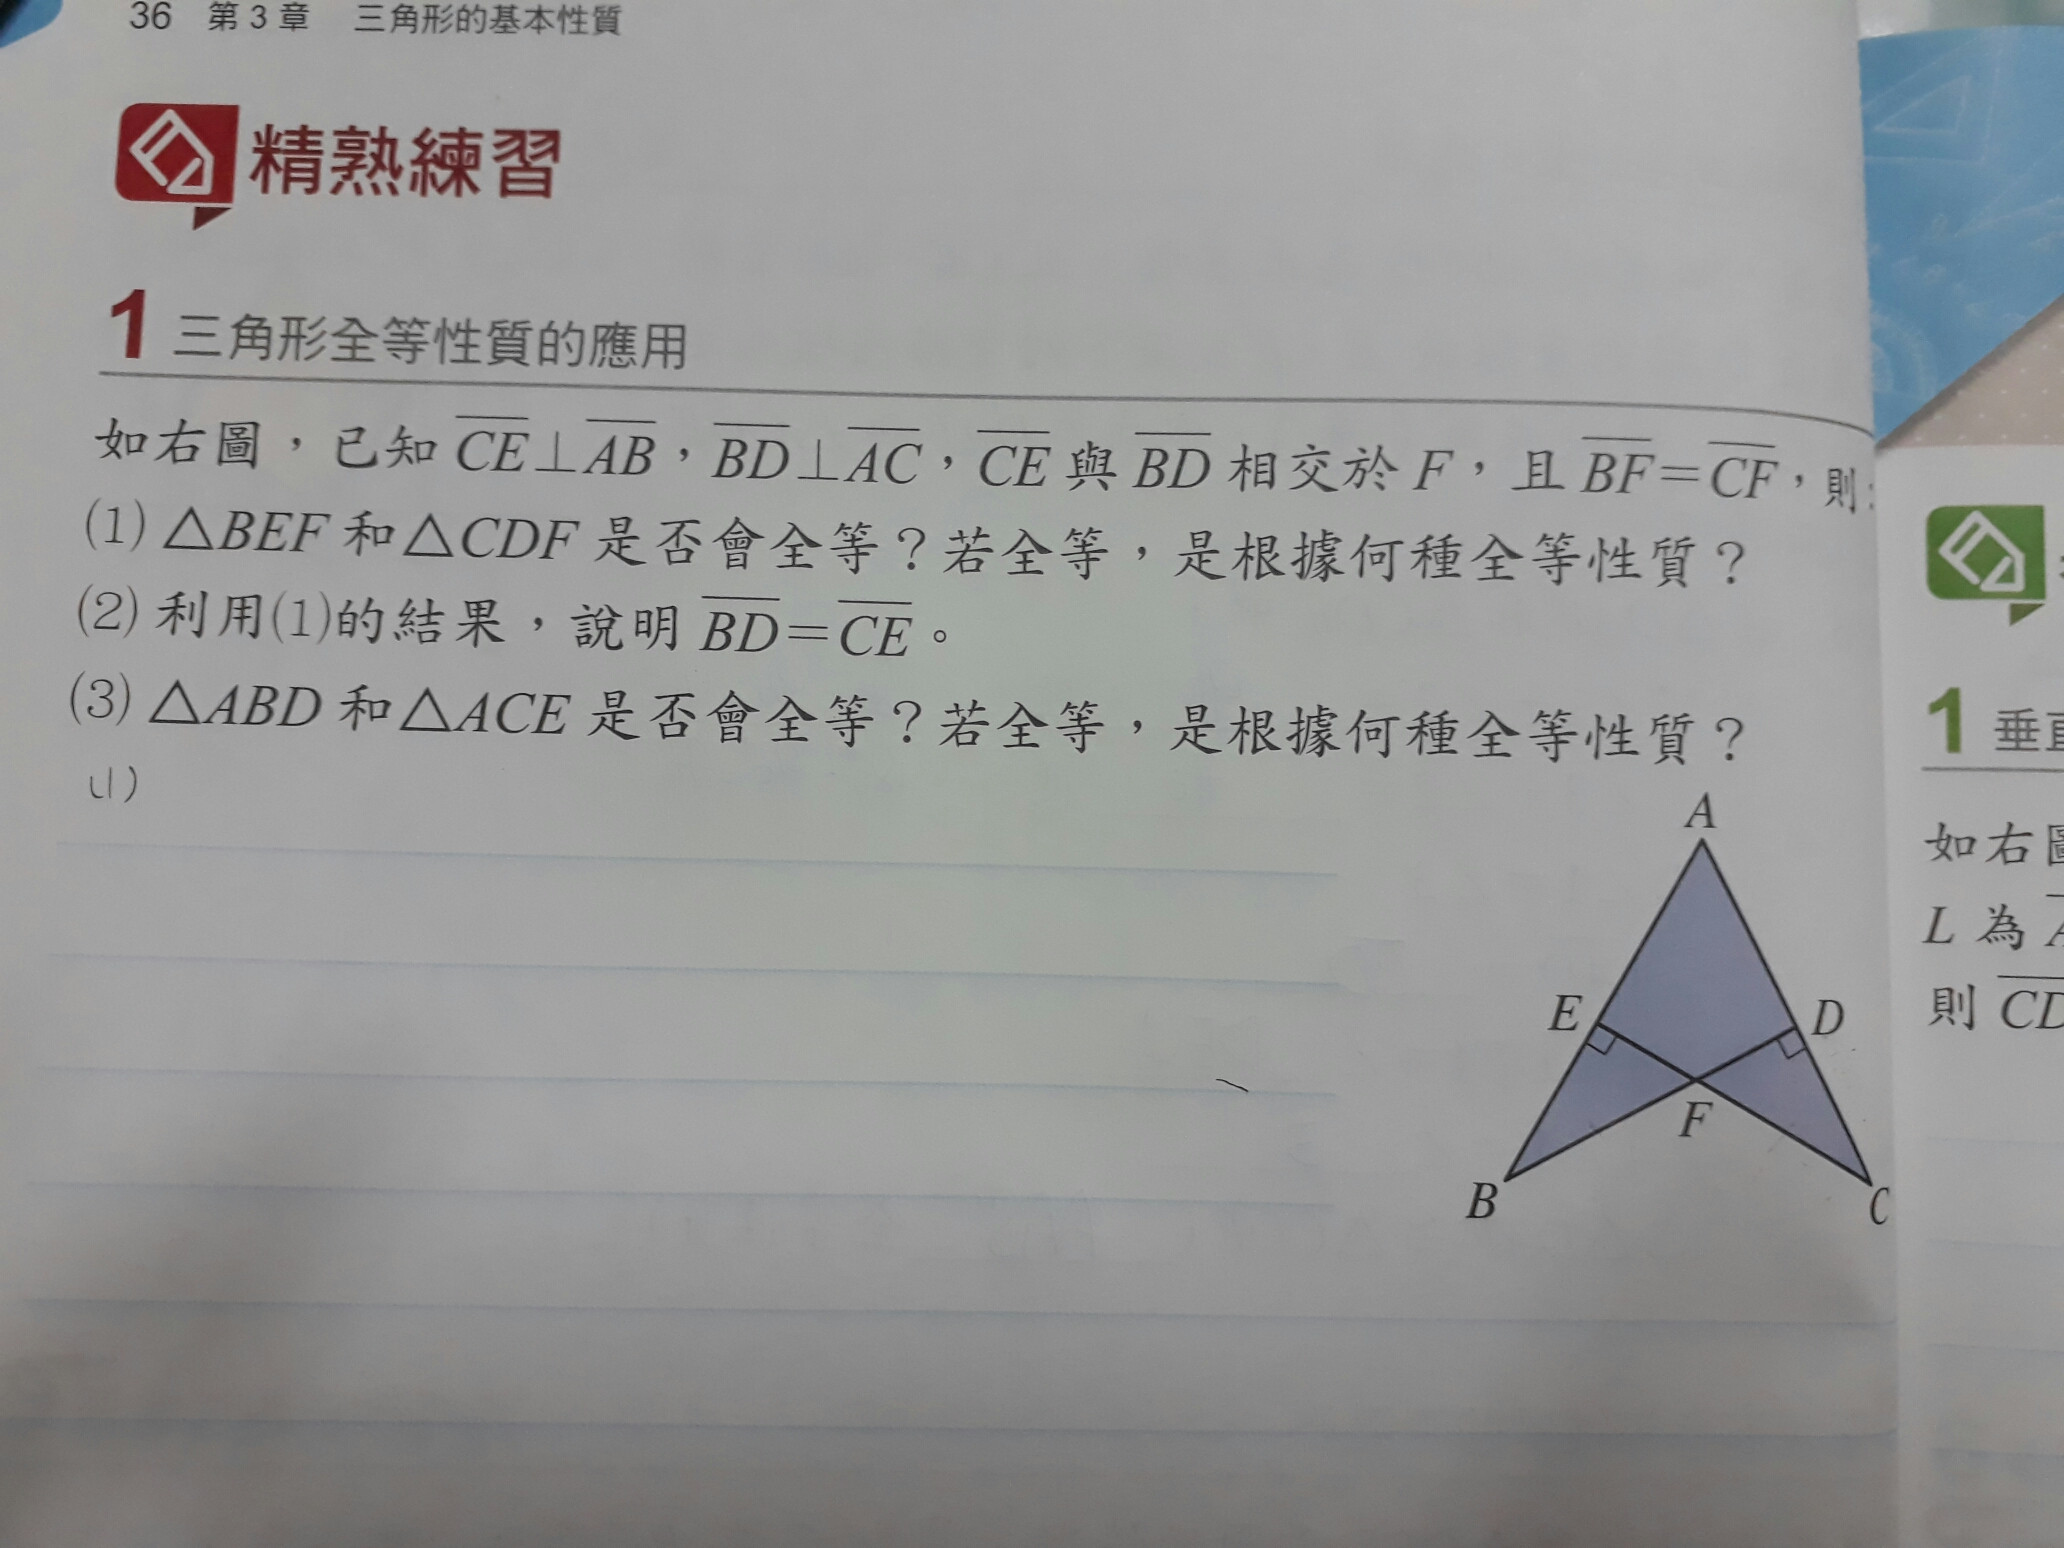 36 第3章 三角形的基本性質
精熟練習
1 三角形全等性質的應用
如右圖，已知 CE⊥AB，BD⊥AC，CE 與 BD 相交於 F，且 BF＝CF，則：
(1) △BEF 和△CDF 是否會全等？若全等，是根據何種全等性質？
(2) 利用(1)的結果，說明 BD＝CE。
(3) △ABD 和△ACE 是否會全等？若全等，是根據何種全等性質？
(1)
A
E
D
F
B
C
1 垂直
如右圖
L 為
則 CD